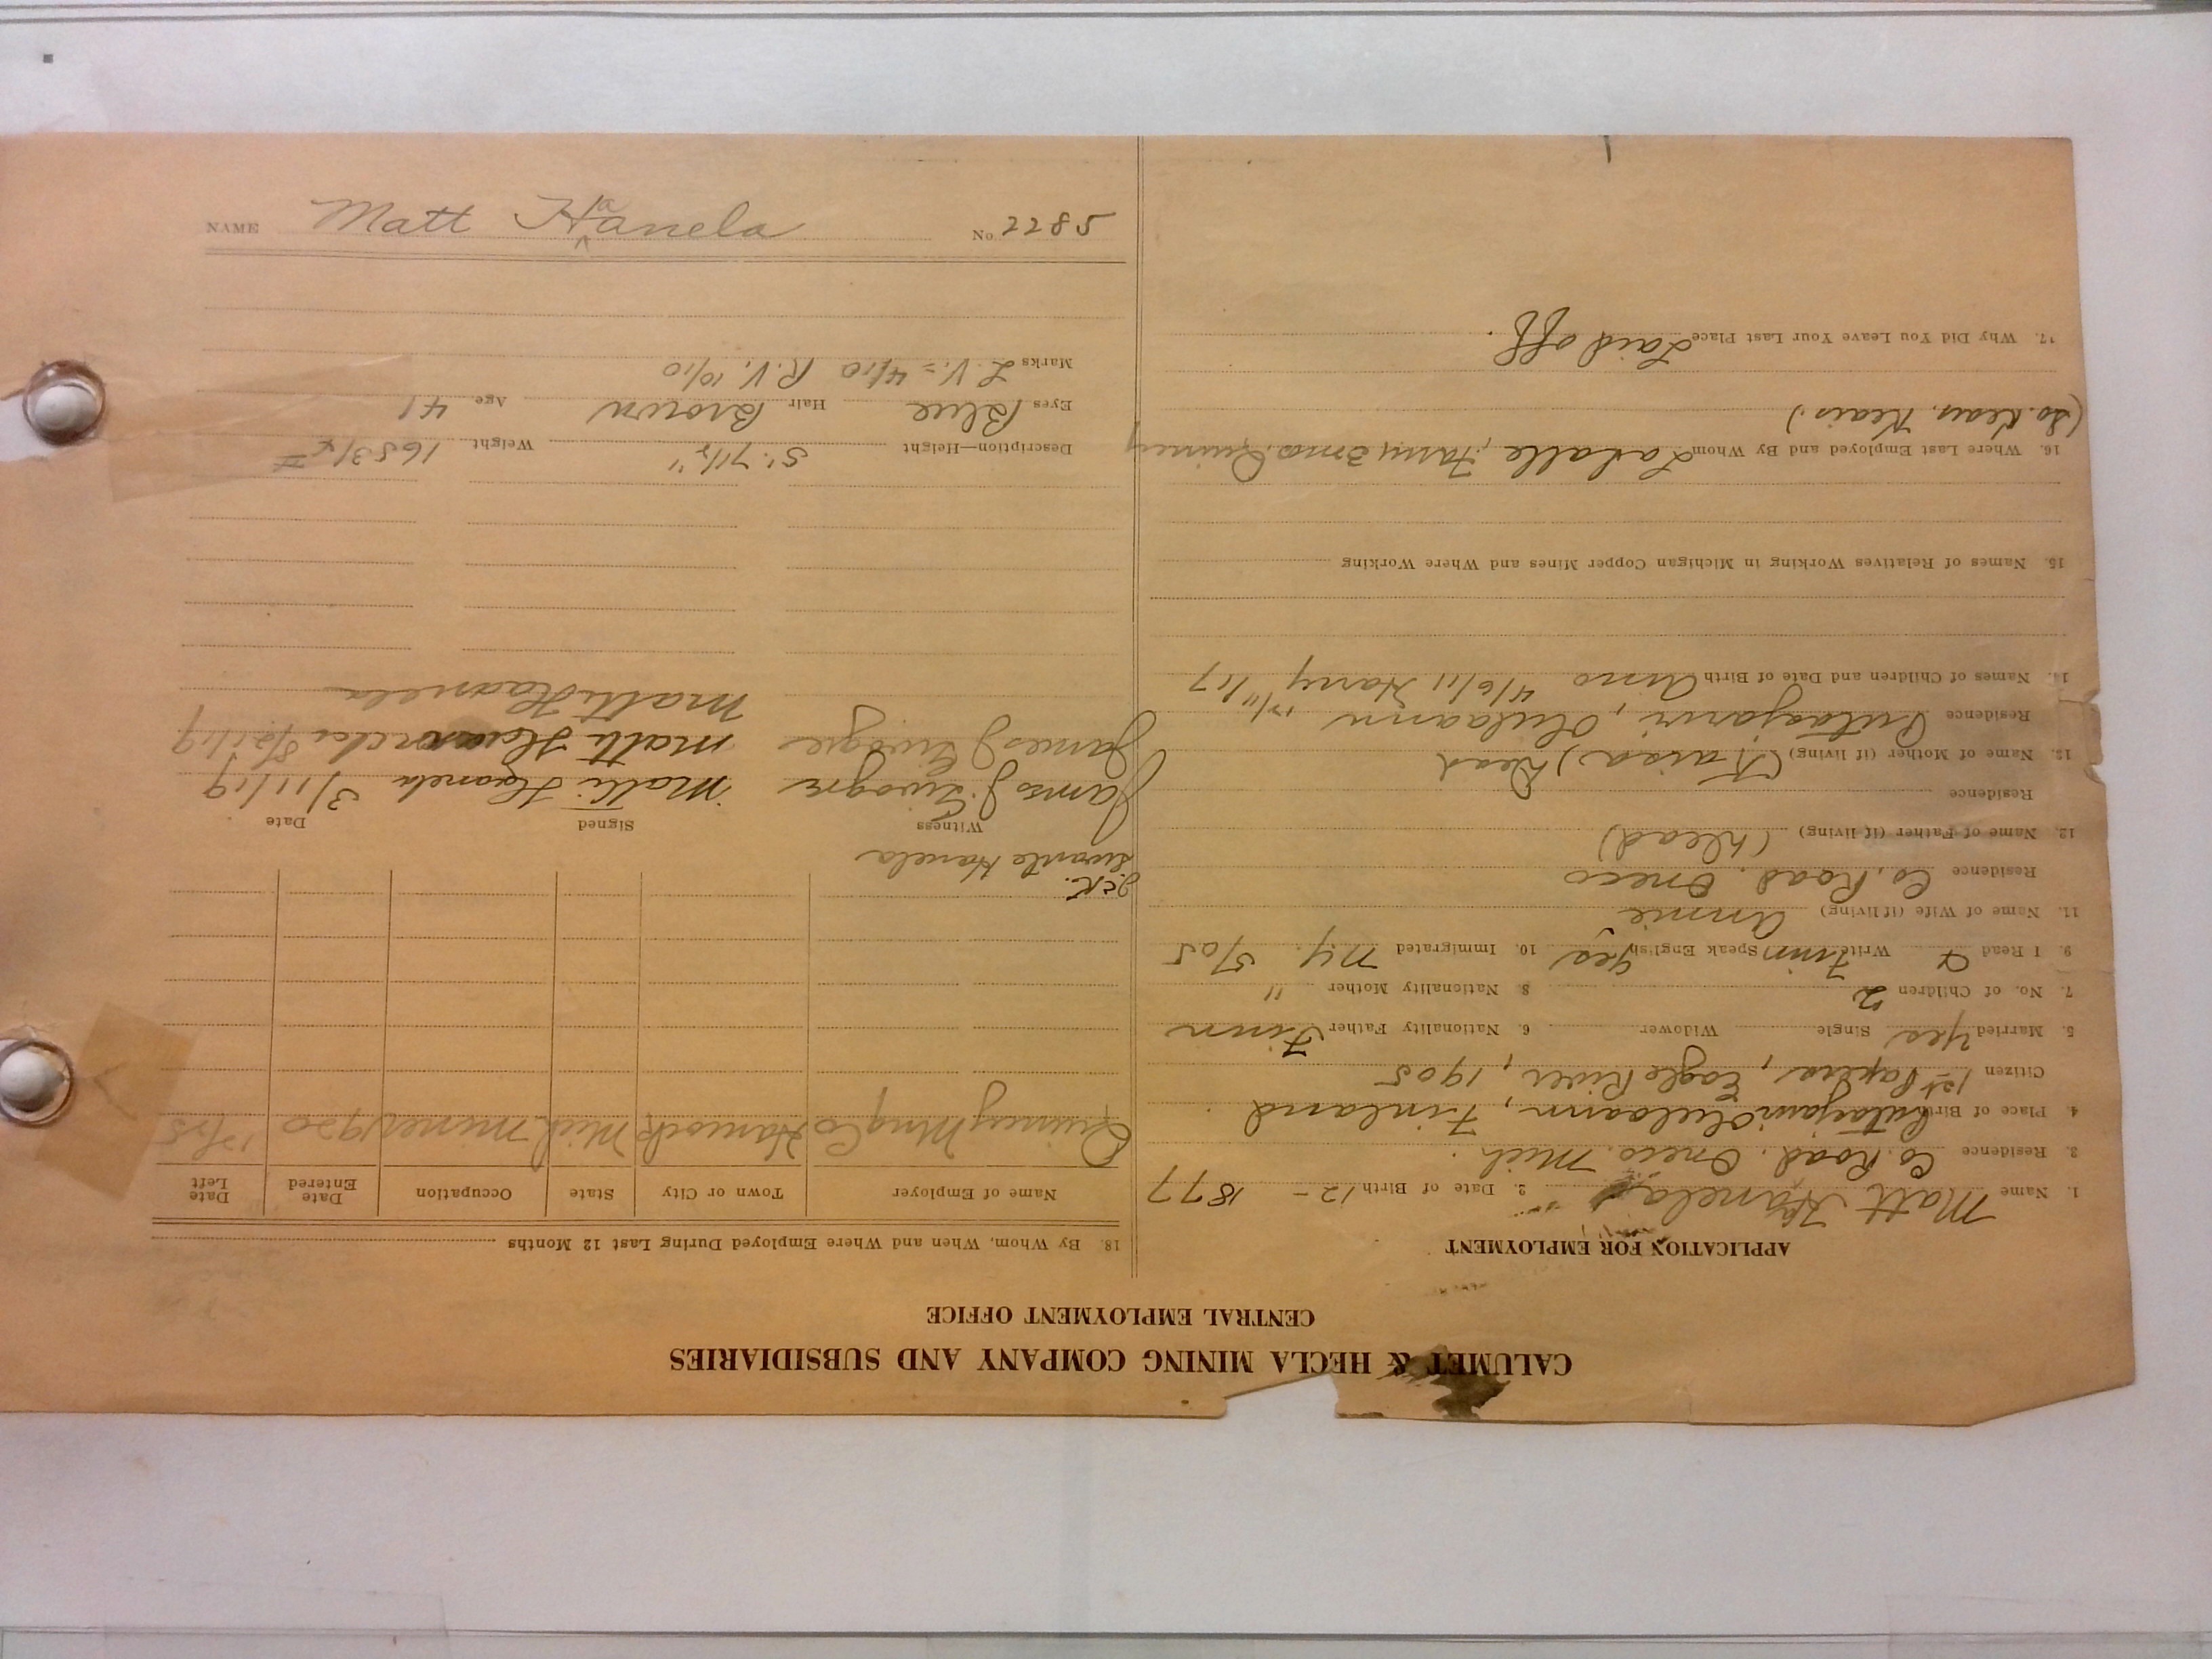 CALUMET & HECLA MINING COMPANY AND SUBSIDIARIES
CENTRAL EMPLOYMENT OFFICE
APPLICATION FOR EMPLOYMENT
1. Name Matt Hanela 2. Date of Birth 12- 1877
3. Residence Co. Road. Oneco. Mich.
4. Place of Birth Finland
Citizen 1st Papers, Eagle River, 1905
5. Married Yes Single Widower 6. Nationality Father Finn
7. No. of Children 2 8. Nationality Mother "
9. I Read & Write Finn Speak English Yes 10. Immigrated N.Y. 5/05
11. Name of Wife (if living) Annie
Residence Co. Road. Oneco
12. Name of Father (if living) (Dead)
Residence
13. Name of Mother (if living) (Kaisa) Dead
Residence
14. Names of Children and Date of Birth Arno 4/6/11 Harry 12/11/17
15. Names of Relatives Working in Michigan Copper Mines and Where Working
16. Where Last Employed and By Whom LaSalle, Quincy
(So. Kear. Kears.)
17. Why Did You Leave Your Last Place Laid off.
18. By Whom, When and Where Employed During Last 12 Months
Name of Employer Town or City State Occupation Date Entered Date Left
Quincy Mng Co Hancock Mich miner 1920 12/25
Hanela
Witness Signed Date
James J. Matti Haanela 3/11/19
James J. Matti 8/21/19
Matti Haanela
Description—Height 5'. 7 1/2" Weight 165 3/4 #
Eyes Blue Hair Brown Age 41
Marks L. V. = 4/10 R. V. 10/10
No. 2285
NAME Matt Haanela